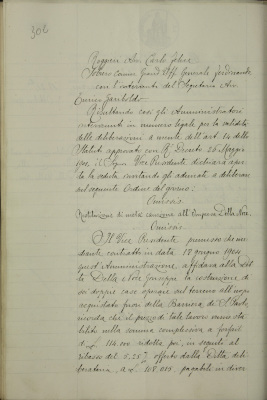 302
Ruggeri Avv. Carlo Felice
Tobero Comm. Grand'Off. Generale Ferdinando
con l'intervento del Segretario Avv.
Enrico Garibaldo
Risultando così gli Amministratori
intervenuti in numero legale per la validità
delle deliberazioni a mente dell'art. 14 dello
Statuto approvato con R. Decreto 28 Maggio
il Sign. Vice Presidente dichiara aper-
ta la seduta, invitando gli adunati a deliberare
sul seguente Ordine del giorno:
Omissis
Restituzione di cauzione all'Impresa Della
Omissis
Il Vice Presidente premesso che me-
diante contratti in data 17 giugno 1904
quest'Amministrazione, affidava alla Dit-
ta Della Giuseppe la costruzione di
sei doppie case operaie sul terreno all'uopo
acquistato fuori della Barriera di S. Paolo,
ricorda che il prezzo di tale lavoro venne sta-
bilito nella somma complessiva a forfait
di £ 114.000 ridotta poi, in seguito al
ribasso del 5.25% offerto dalla Ditta deli-
berataria, a £ 108.015, pagabili in diver